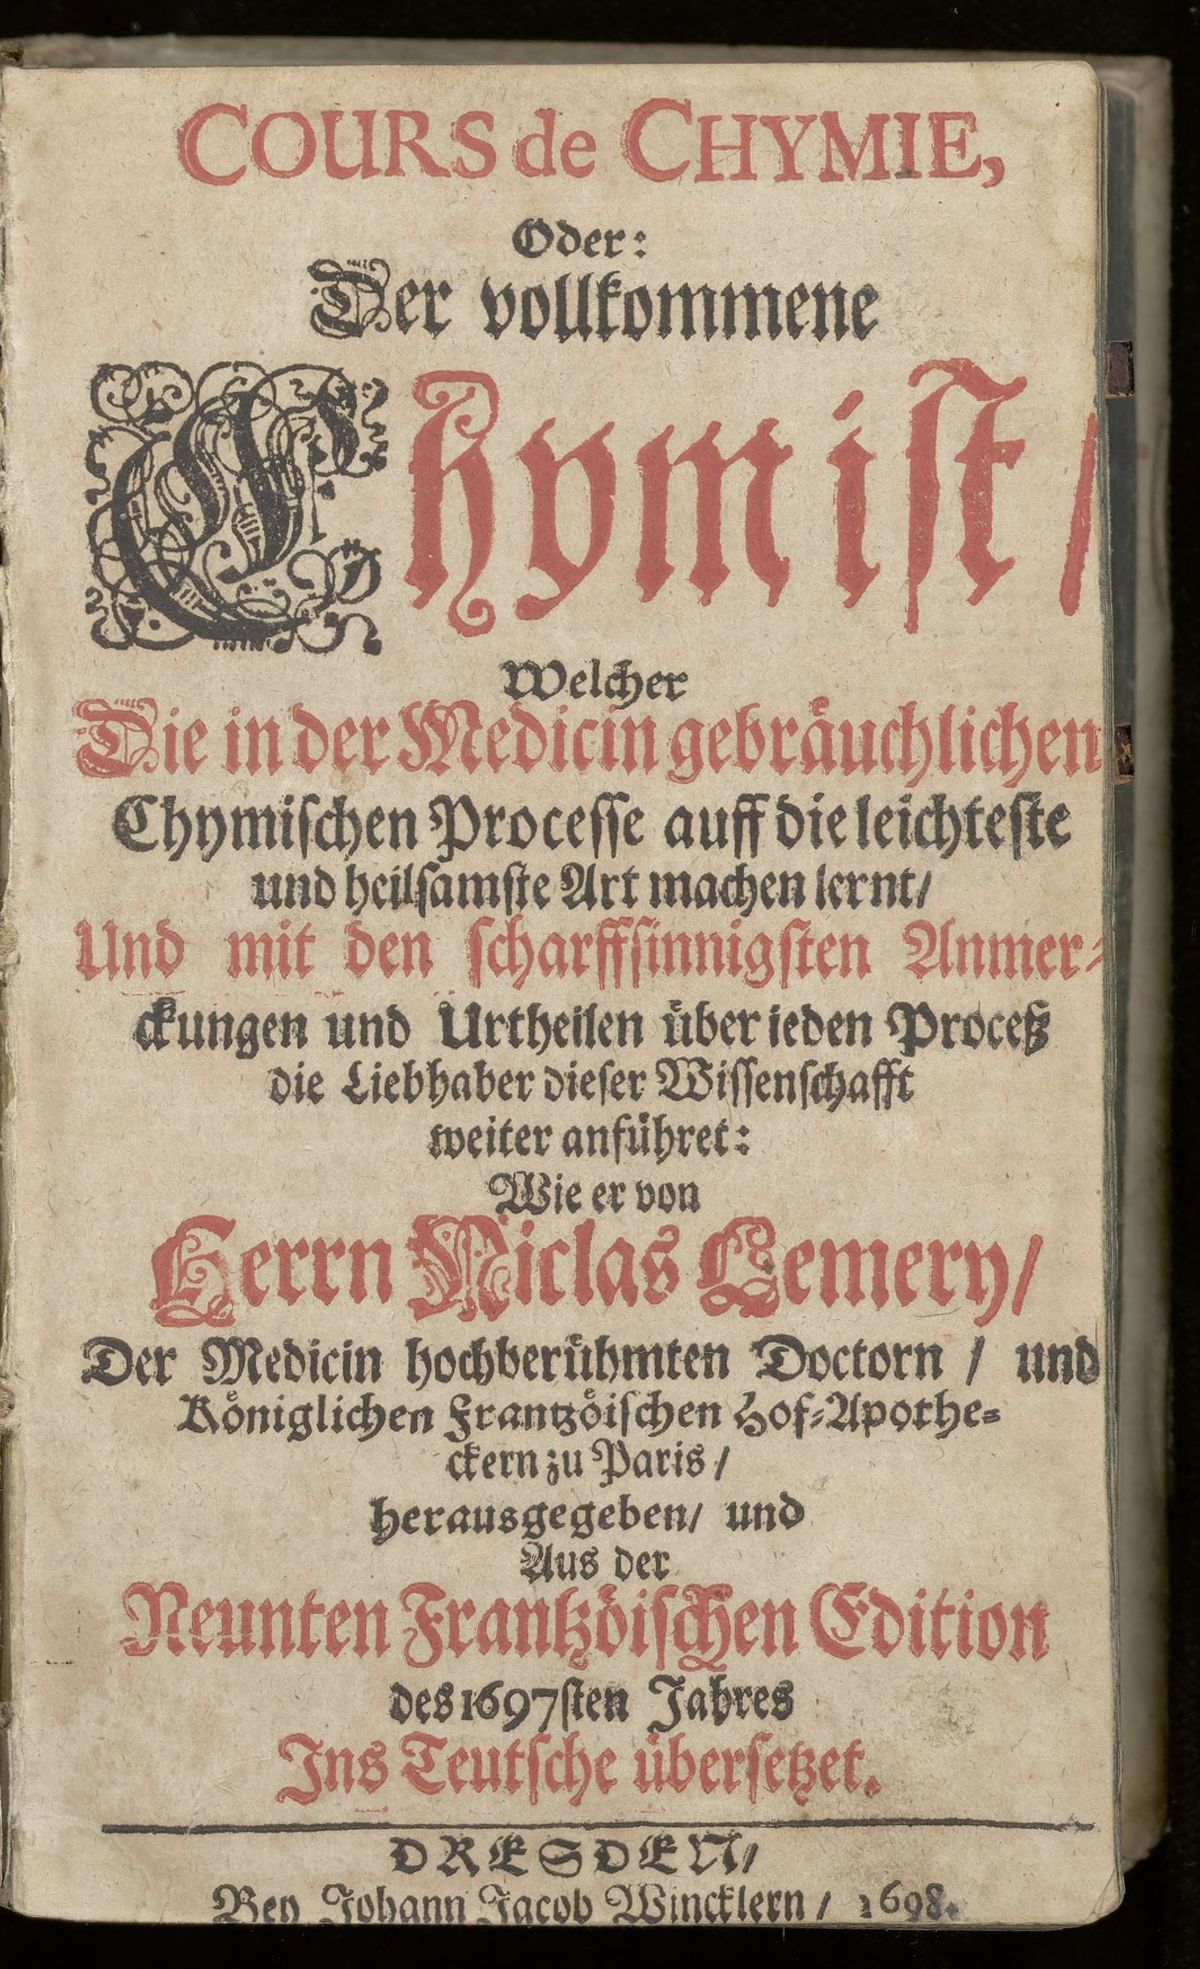 COURS de CHYMIE,
Oder:
Der vollkommene
Chymiſt /
Welcher
Die in der Medicin gebräuchlichen
Chymiſchen Proceſſe auff die leichteſte
und heilſamſte Art machen lernt/
Und mit den ſcharffſinnigſten Anmer⸗
ckungen und Urtheilen über ieden Proceß
die Liebhaber dieſer Wiſſenſchafft
weiter anführet:
Wie er von
Herrn Niclas Lemery/
Der Medicin hochberühmten Doctorn / und
Königlichen Frantzöiſchen Hof⸗Apothe⸗
ckern zu Paris /
herausgegeben/ und
Aus der
Neunten Frantzöiſchen Edition
des 1697ſten Jahres
Ins Teutſche überſetzet.
DRESDEN/
Bey Johann Jacob Wincklern / 1698.